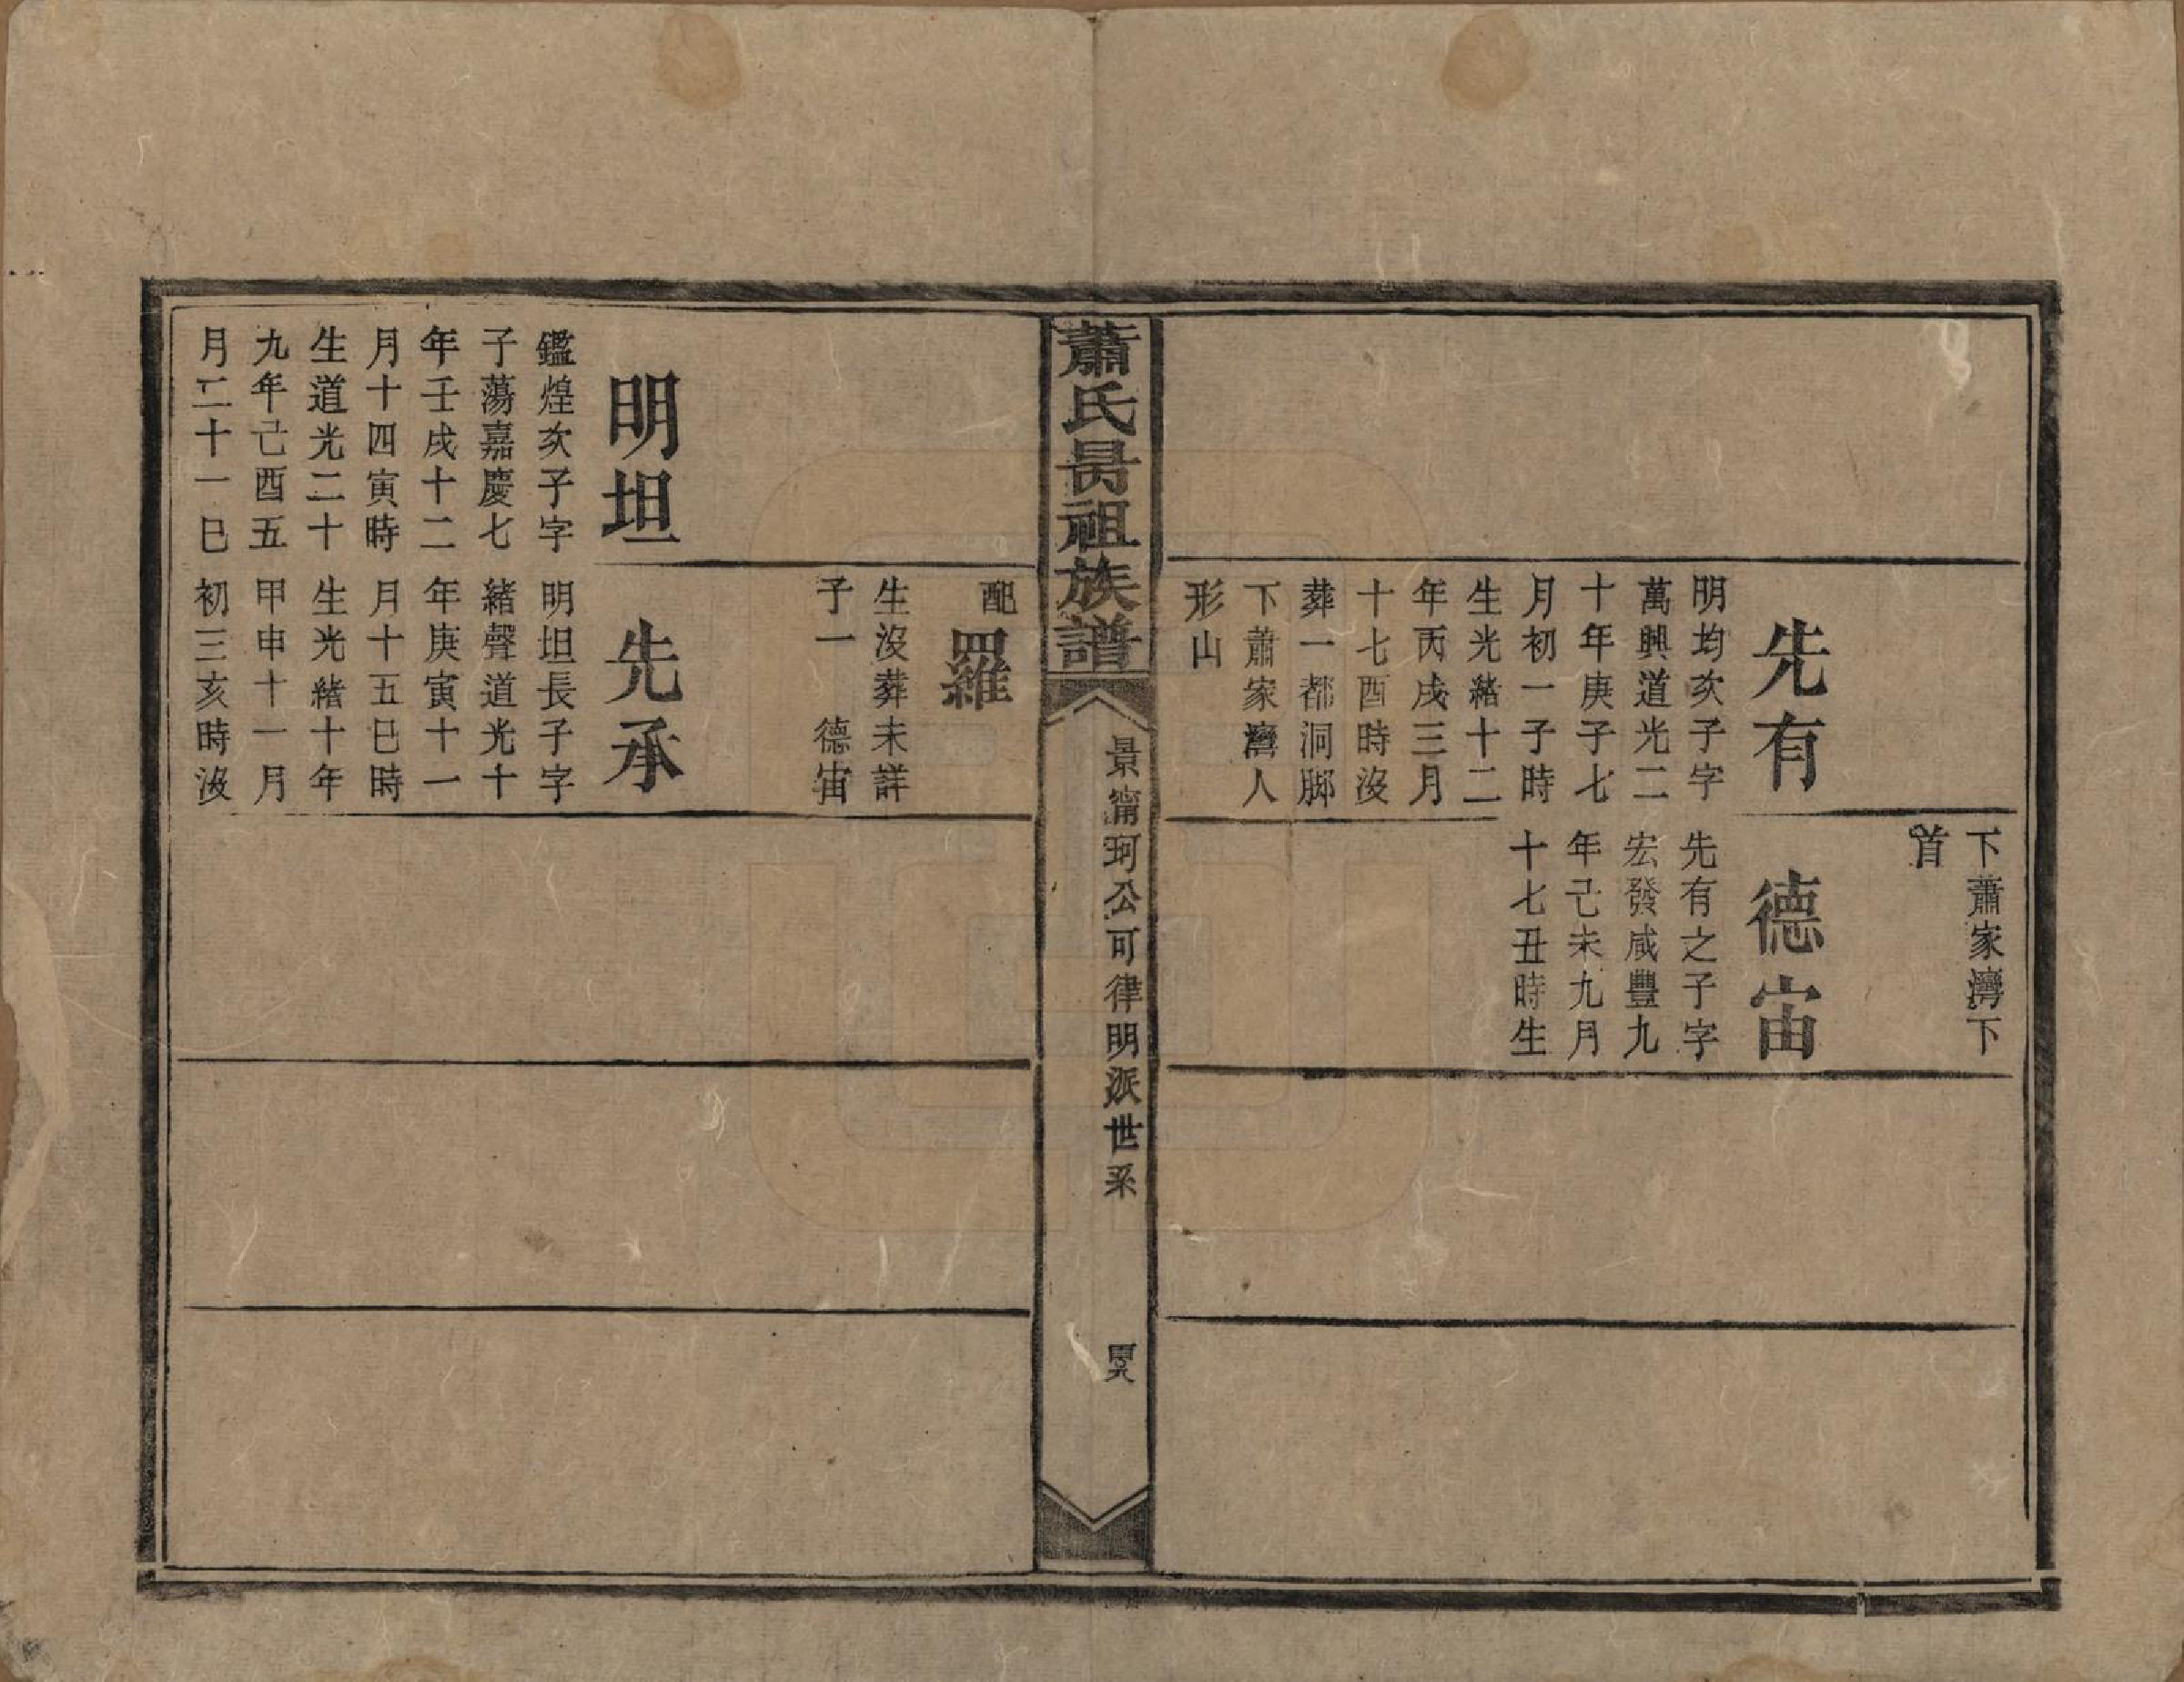 下蕭家灣下
首
先有
明均次子字
萬興道光二
十年庚子七
月初一子時
生光緒十二
年丙戌三月
十七酉時沒
葬一都洞脚
下蕭家灣人
形山
德宙
先有之子字
宏發咸豐九
年己未九月
十七丑時生
蕭氏昺祖族譜
景甯珂公可律明派世系
配羅
生沒葬未詳
子一 德宙
明坦
鑑煌次子字
子蕩嘉慶七
年壬戌十二
月十四寅時
生道光二十
九年己酉五
月二十一巳
先承
明坦長子字
緒聲道光十
年庚寅十一
月十五巳時
生光緒十年
甲申十一月
初三亥時沒